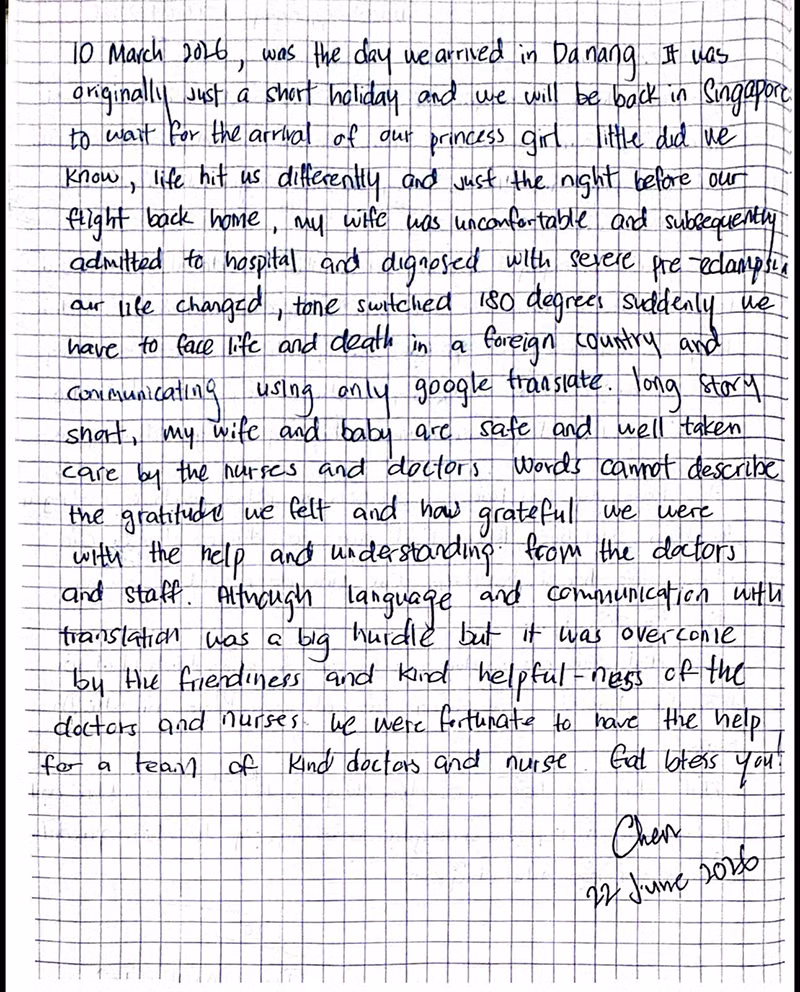 10 March 2026, was the day we arrived in Danang. It was
originally just a short holiday and we will be back in Singapore
to wait for the arrival of our princess girl. little did we
know, life hit us differently and just the night before our
flight back home, my wife was unconfortable and subsequently
admitted to hospital and dignosed with severe pre-eclampsia
our life changed, tone switched 180 degrees suddenly we
have to face life and death in a foreign country and
communicating using only google translate. long story
short, my wife and baby are safe and well taken
care by the nurses and doctors words cannot describe
the gratitude we felt and how grateful we were
with the help and understanding. from the doctors
and staff. Although language and communication with
translation was a big hurdle but it was overcome
by the friendiness and kind helpful-ness of the
doctors and nurses. we were fortunate to have the help
for a team of kind doctors and nurse. God bless you!
Chen
22 June 2026